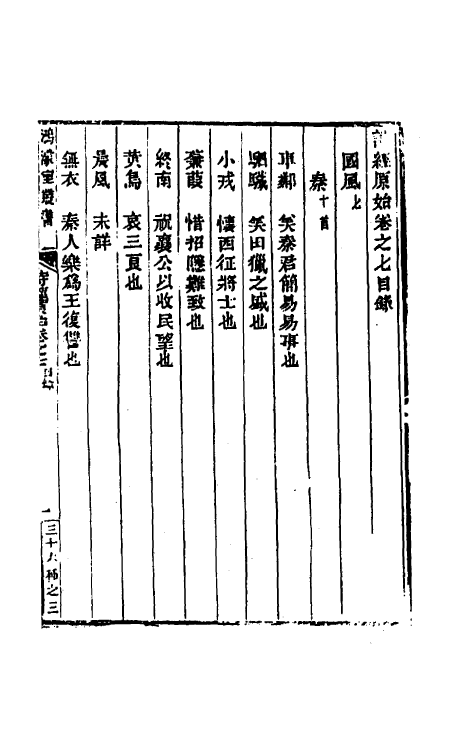 詩經原始卷之七目錄
國風七
秦十首
車鄰 美秦君簡易易事也
駟驖 美田獵之盛也
小戎 懷西征將士也
蒹葭 惜招隱難致也
終南 祝襄公以收民望也
黃鳥 哀三良也
晨風 未詳
無衣 秦人樂爲王復讐也
鴻濛室叢書
詩經原始卷之七目錄
一
三十六種之三